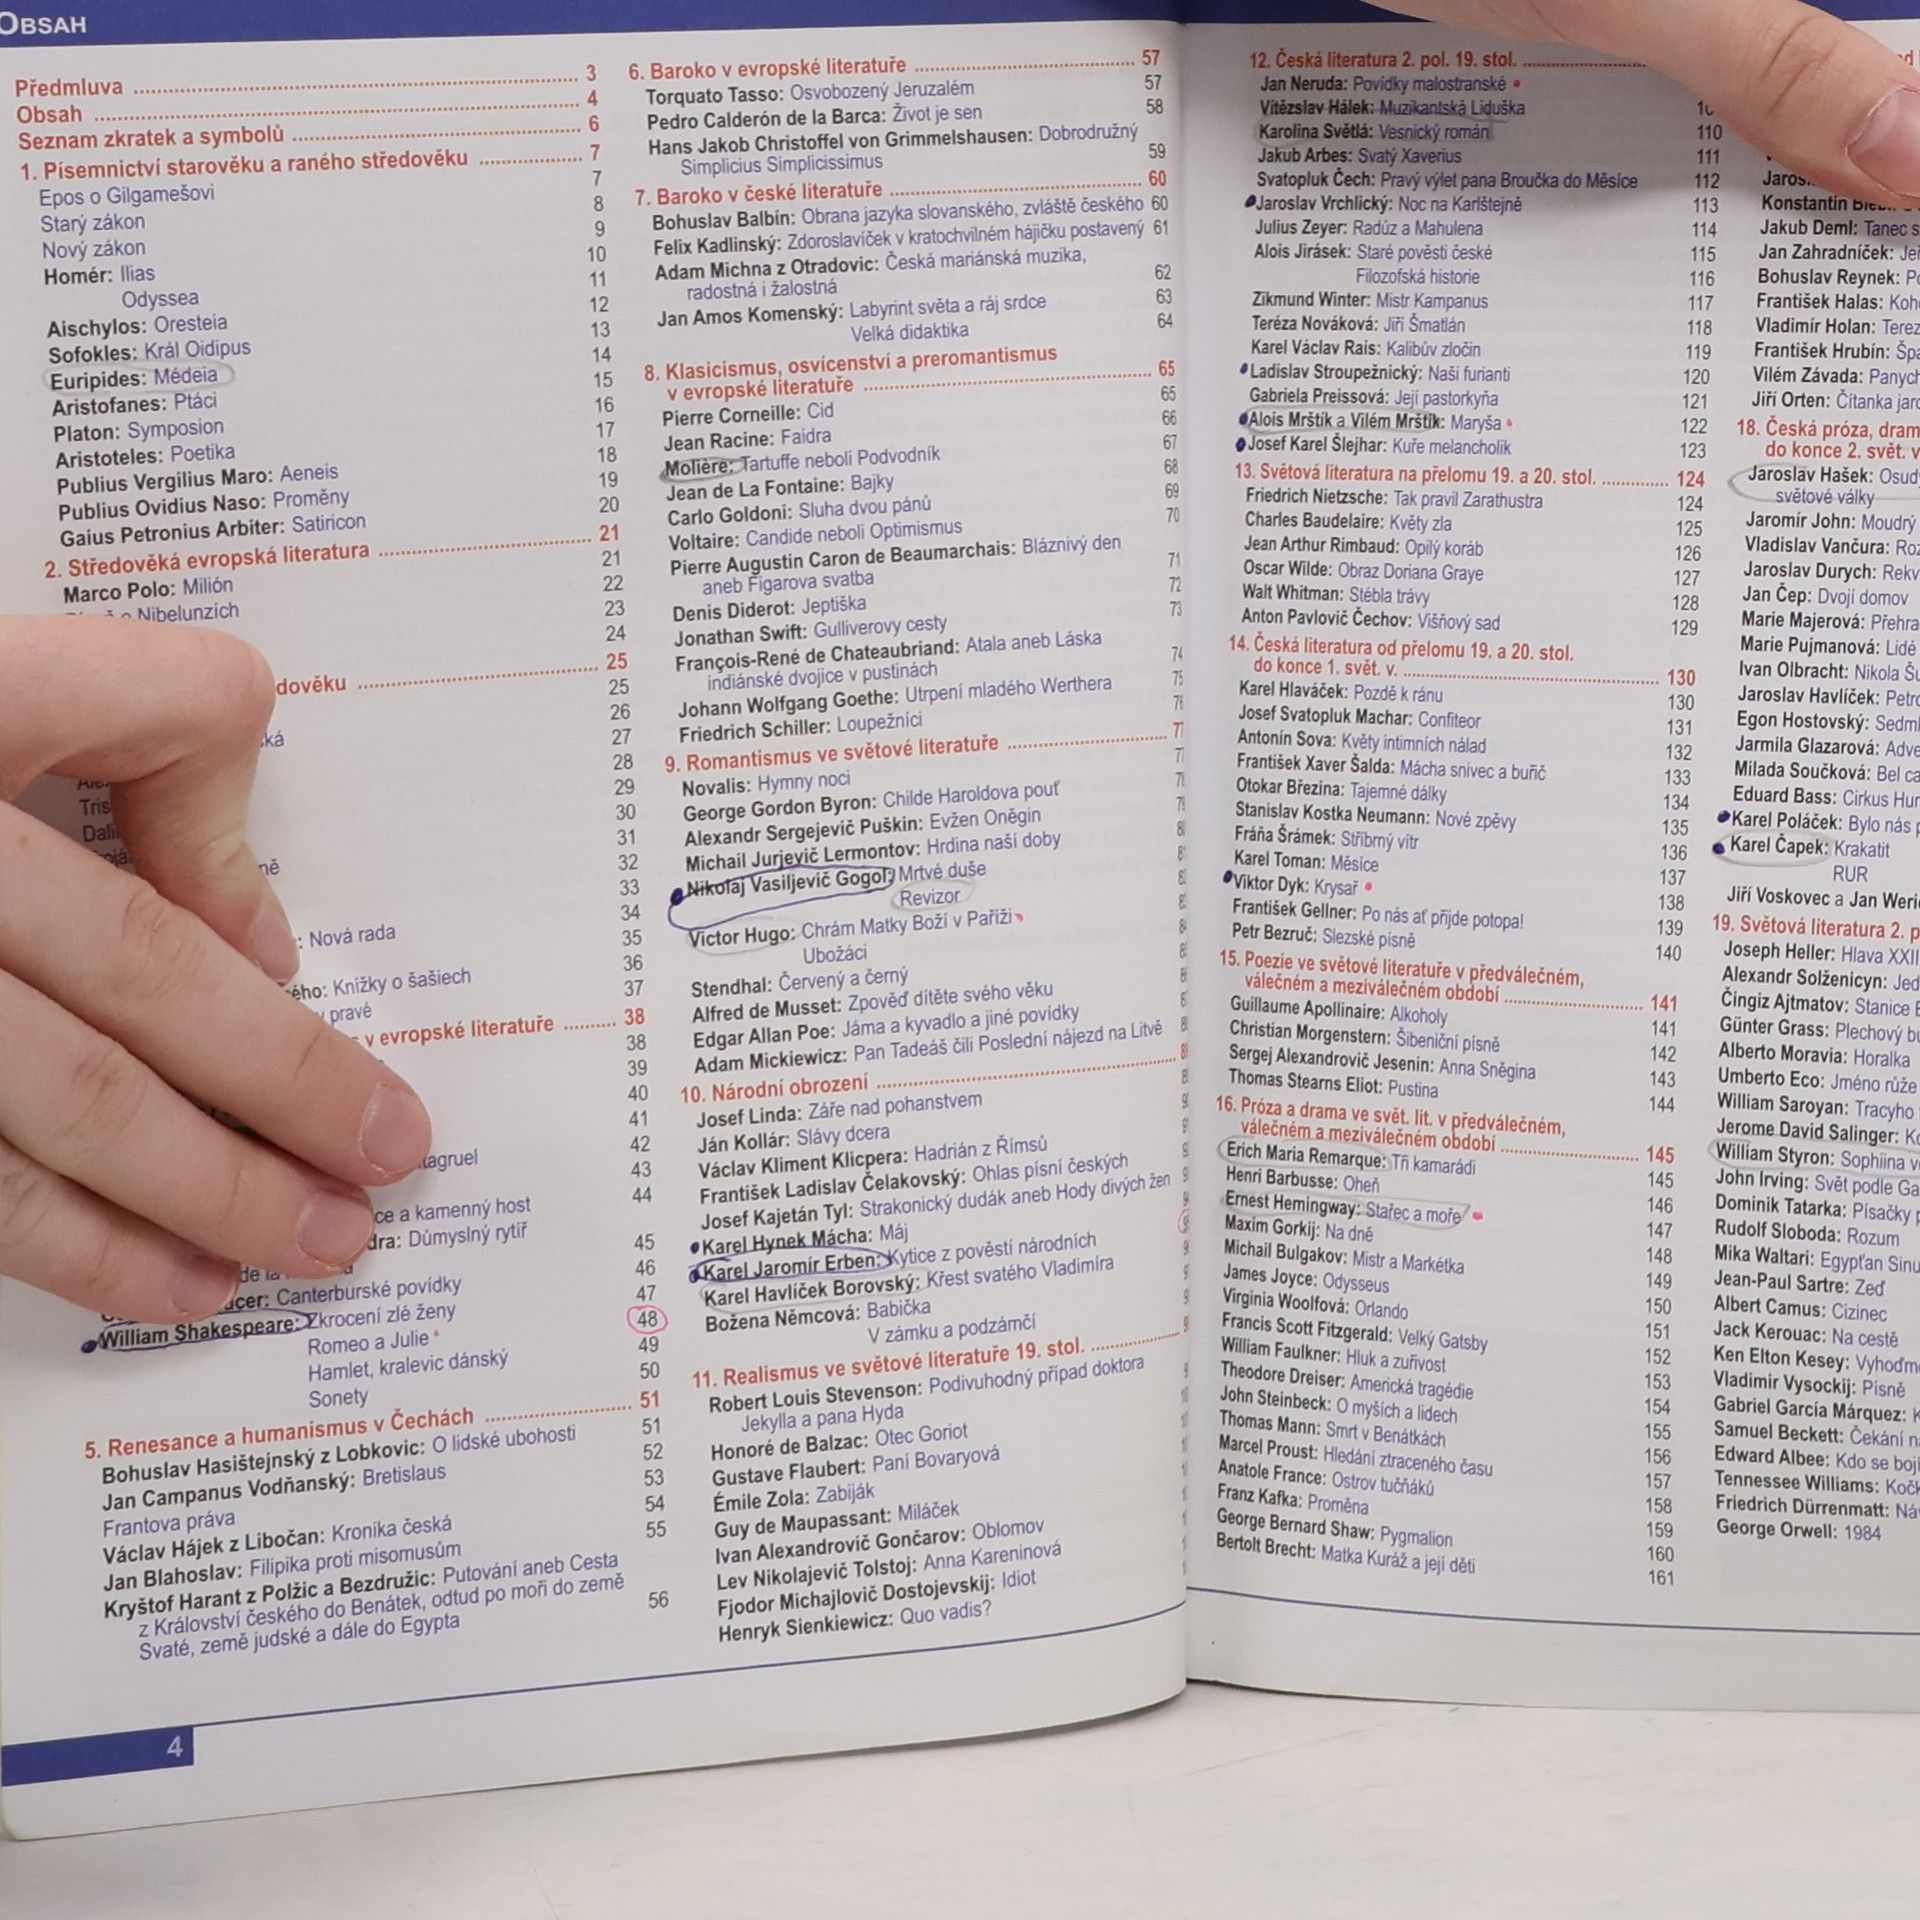 OBSAH
Předmluva 3
Obsah 4
Seznam zkratek a symbolů 6
1. Písemnictví starověku a raného středověku 7
Epos o Gilgamešovi 7
Starý zákon 8
Nový zákon 9
Homér: Ilias 10
Odyssea 11
Aischylos: Oresteia 12
Sofokles: Král Oidipus 13
Euripides: Médeia 14
Aristofanes: Ptáci 15
Platon: Symposion 16
Aristoteles: Poetika 17
Publius Vergilius Maro: Aeneis 18
Publius Ovidius Naso: Proměny 19
Gaius Petronius Arbiter: Satiricon 20
2. Středověká evropská literatura 21
Marco Polo: Milión 21
o Nibelunzích 22
23
24
25
25
26
27
28
29
30
31
32
33
34
: Nová rada 35
36
Knížky o šašiech 37
pravé
v evropské literatuře 38
38
39
40
41
42
43
44
ce a kamenný host
Důmyslný rytíř 45
46
Canterburské povídky 47
William Shakespeare: Zkrocení zlé ženy 48
Romeo a Julie 49
Hamlet, kralevic dánský 50
Sonety
5. Renesance a humanismus v Čechách 51
Bohuslav Hasištejnský z Lobkovic: O lidské ubohosti 51
Jan Campanus Vodňanský: Bretislaus 52
Frantova práva 53
Václav Hájek z Libočan: Kronika česká 54
Jan Blahoslav: Filipika proti misomusům 55
Kryštof Harant z Polžic a Bezdružic: Putování aneb Cesta
z Království českého do Benátek, odtud po moři do země
Svaté, země judské a dále do Egypta 56
4
6. Baroko v evropské literatuře 57
Torquato Tasso: Osvobozený Jeruzalém 57
Pedro Calderón de la Barca: Život je sen 58
Hans Jakob Christoffel von Grimmelshausen: Dobrodružný
Simplicius Simplicissimus 59
7. Baroko v české literatuře 60
Bohuslav Balbín: Obrana jazyka slovanského, zvláště českého 60
Felix Kadlinský: Zdoroslavíček v kratochvilném hájičku postavený 61
Adam Michna z Otradovic: Česká mariánská muzika,
radostná i žalostná 62
Jan Amos Komenský: Labyrint světa a ráj srdce 63
Velká didaktika 64
8. Klasicismus, osvícenství a preromantismus
v evropské literatuře 65
Pierre Corneille: Cid 65
Jean Racine: Faidra 66
Molière: Tartuffe neboli Podvodník 67
Jean de La Fontaine: Bajky 68
Carlo Goldoni: Sluha dvou pánů 69
Voltaire: Candide neboli Optimismus 70
Pierre Augustin Caron de Beaumarchais: Bláznivý den
aneb Figarova svatba 71
Denis Diderot: Jeptiška 72
Jonathan Swift: Gulliverovy cesty 73
François-René de Chateaubriand: Atala aneb Láska
indiánské dvojice v pustinách 74
Johann Wolfgang Goethe: Utrpení mladého Werthera 75
Friedrich Schiller: Loupežníci
9. Romantismus ve světové literatuře
Novalis: Hymny noci
George Gordon Byron: Childe Haroldova pouť
Alexandr Sergejevič Puškin: Evžen Oněgin
Michail Jurjevič Lermontov: Hrdina naší doby
Nikolaj Vasiljevič Gogol: Mrtvé duše
Revizor
Victor Hugo: Chrám Matky Boží v Paříži
Ubožáci
Stendhal: Červený a černý
Alfred de Musset: Zpověď dítěte svého věku
Edgar Allan Poe: Jáma a kyvadlo a jiné povídky
Adam Mickiewicz: Pan Tadeáš čili Poslední nájezd na Litvě
10. Národní obrození
Josef Linda: Záře nad pohanstvem
Ján Kollár: Slávy dcera
Václav Kliment Klicpera: Hadrián z Římsů
František Ladislav Čelakovský: Ohlas písní českých
Josef Kajetán Tyl: Strakonický dudák aneb Hody divých žen
Karel Hynek Mácha: Máj
Karel Jaromír Erben: Kytice z pověstí národních
Karel Havlíček Borovský: Křest svatého Vladimíra
Božena Němcová: Babička
V zámku a podzámčí
11. Realismus ve světové literatuře 19. stol.
Robert Louis Stevenson: Podivuhodný případ doktora
Jekylla a pana Hyda
Honoré de Balzac: Otec Goriot
Gustave Flaubert: Paní Bovaryová
Émile Zola: Zabiják
Guy de Maupassant: Miláček
Ivan Alexandrovič Gončarov: Oblomov
Lev Nikolajevič Tolstoj: Anna Kareninová
Fjodor Michajlovič Dostojevskij: Idiot
Henryk Sienkiewicz: Quo vadis?
12. Česká literatura 2. pol. 19. stol.
Jan Neruda: Povídky malostranské
Vítězslav Hálek: Muzikantská Liduška
Karolina Světlá: Vesnický román 110
Jakub Arbes: Svatý Xaverius 111
Svatopluk Čech: Pravý výlet pana Broučka do Měsíce 112
Jaroslav Vrchlický: Noc na Karlštejně 113
Julius Zeyer: Radúz a Mahulena 114
Alois Jirásek: Staré pověsti české 115
Filozofská historie 116
Zikmund Winter: Mistr Kampanus 117
Teréza Nováková: Jiří Šmatlán 118
Karel Václav Rais: Kalibův zločin 119
Ladislav Stroupežnický: Naši furianti 120
Gabriela Preissová: Její pastorkyňa 121
Alois Mrštík a Vilém Mrštík: Maryša 122
Josef Karel Šlejhar: Kuře melancholik 123
13. Světová literatura na přelomu 19. a 20. stol. 124
Friedrich Nietzsche: Tak pravil Zarathustra 124
Charles Baudelaire: Květy zla 125
Jean Arthur Rimbaud: Opilý koráb 126
Oscar Wilde: Obraz Doriana Graye 127
Walt Whitman: Stébla trávy 128
Anton Pavlovič Čechov: Višňový sad 129
14. Česká literatura od přelomu 19. a 20. stol.
do konce 1. svět. v. 130
Karel Hlaváček: Pozdě k ránu 130
Josef Svatopluk Machar: Confiteor 131
Antonín Sova: Květy intimních nálad 132
František Xaver Šalda: Mácha snivec a buřič 133
Otokar Březina: Tajemné dálky 134
Stanislav Kostka Neumann: Nové zpěvy 135
Fráňa Šrámek: Stříbrný vítr 136
Karel Toman: Měsíce 137
Viktor Dyk: Krysař 138
František Gellner: Po nás ať přijde potopa! 139
Petr Bezruč: Slezské písně 140
15. Poezie ve světové literatuře v předválečném,
válečném a meziválečném období 141
Guillaume Apollinaire: Alkoholy 141
Christian Morgenstern: Šibeniční písně 142
Sergej Alexandrovič Jesenin: Anna Sněgina 143
Thomas Stearns Eliot: Pustina 144
16. Próza a drama ve svět. lit. v předválečném,
válečném a meziválečném období 145
Erich Maria Remarque: Tři kamarádi 145
Henri Barbusse: Oheň 146
Ernest Hemingway: Stařec a moře 147
Maxim Gorkij: Na dně 148
Michail Bulgakov: Mistr a Markétka 149
James Joyce: Odysseus 150
Virginia Woolfová: Orlando 151
Francis Scott Fitzgerald: Velký Gatsby 152
William Faulkner: Hluk a zuřivost 153
Theodore Dreiser: Americká tragédie 154
John Steinbeck: O myších a lidech 155
Thomas Mann: Smrt v Benátkách 156
Marcel Proust: Hledání ztraceného času 157
Anatole France: Ostrov tučňáků 158
Franz Kafka: Proměna 159
George Bernard Shaw: Pygmalion 160
Bertolt Brecht: Matka Kuráž a její děti 161
Konstantin
Jakub Deml: Tanec
Jan Zahradníček:
Bohuslav Reynek:
František Halas:
Vladimír Holan:
František Hrubín:
Vilém Závada: Panych
Jiří Orten: Čítanka
18. Česká próza, dram
do konce 2. svět. v
Jaroslav Hašek: Osudy
světové války
Jaromír John: Moudrý
Vladislav Vančura:
Jaroslav Durych: Rekv
Jan Čep: Dvojí domov
Marie Majerová: Přehra
Marie Pujmanová: Lidé
Ivan Olbracht: Nikola
Jaroslav Havlíček:
Egon Hostovský:
Jarmila Glazarová: Adve
Milada Součková: Bel
Eduard Bass: Cirkus
Karel Poláček: Bylo nás
Karel Čapek: Krakatit
RUR
Jiří Voskovec a Jan
19. Světová literatura 2.
Joseph Heller: Hlava XXII
Alexandr Solženicyn:
Čingiz Ajtmatov: Stanice
Günter Grass: Plechový
Alberto Moravia: Horalka
Umberto Eco: Jméno růže
William Saroyan: Tracyho
Jerome David Salinger:
William Styron: Sophiina
John Irving: Svět podle
Dominik Tatarka: Písačky
Rudolf Sloboda: Rozum
Mika Waltari: Egypťan
Jean-Paul Sartre: Zeď
Albert Camus: Cizinec
Jack Kerouac: Na cestě
Ken Elton Kesey:
Vladimir Vysockij: Písně
Gabriel García Márquez:
Samuel Beckett: Čekání
Edward Albee: Kdo se bojí
Tennessee Williams:
Friedrich Dürrenmatt:
George Orwell: 1984